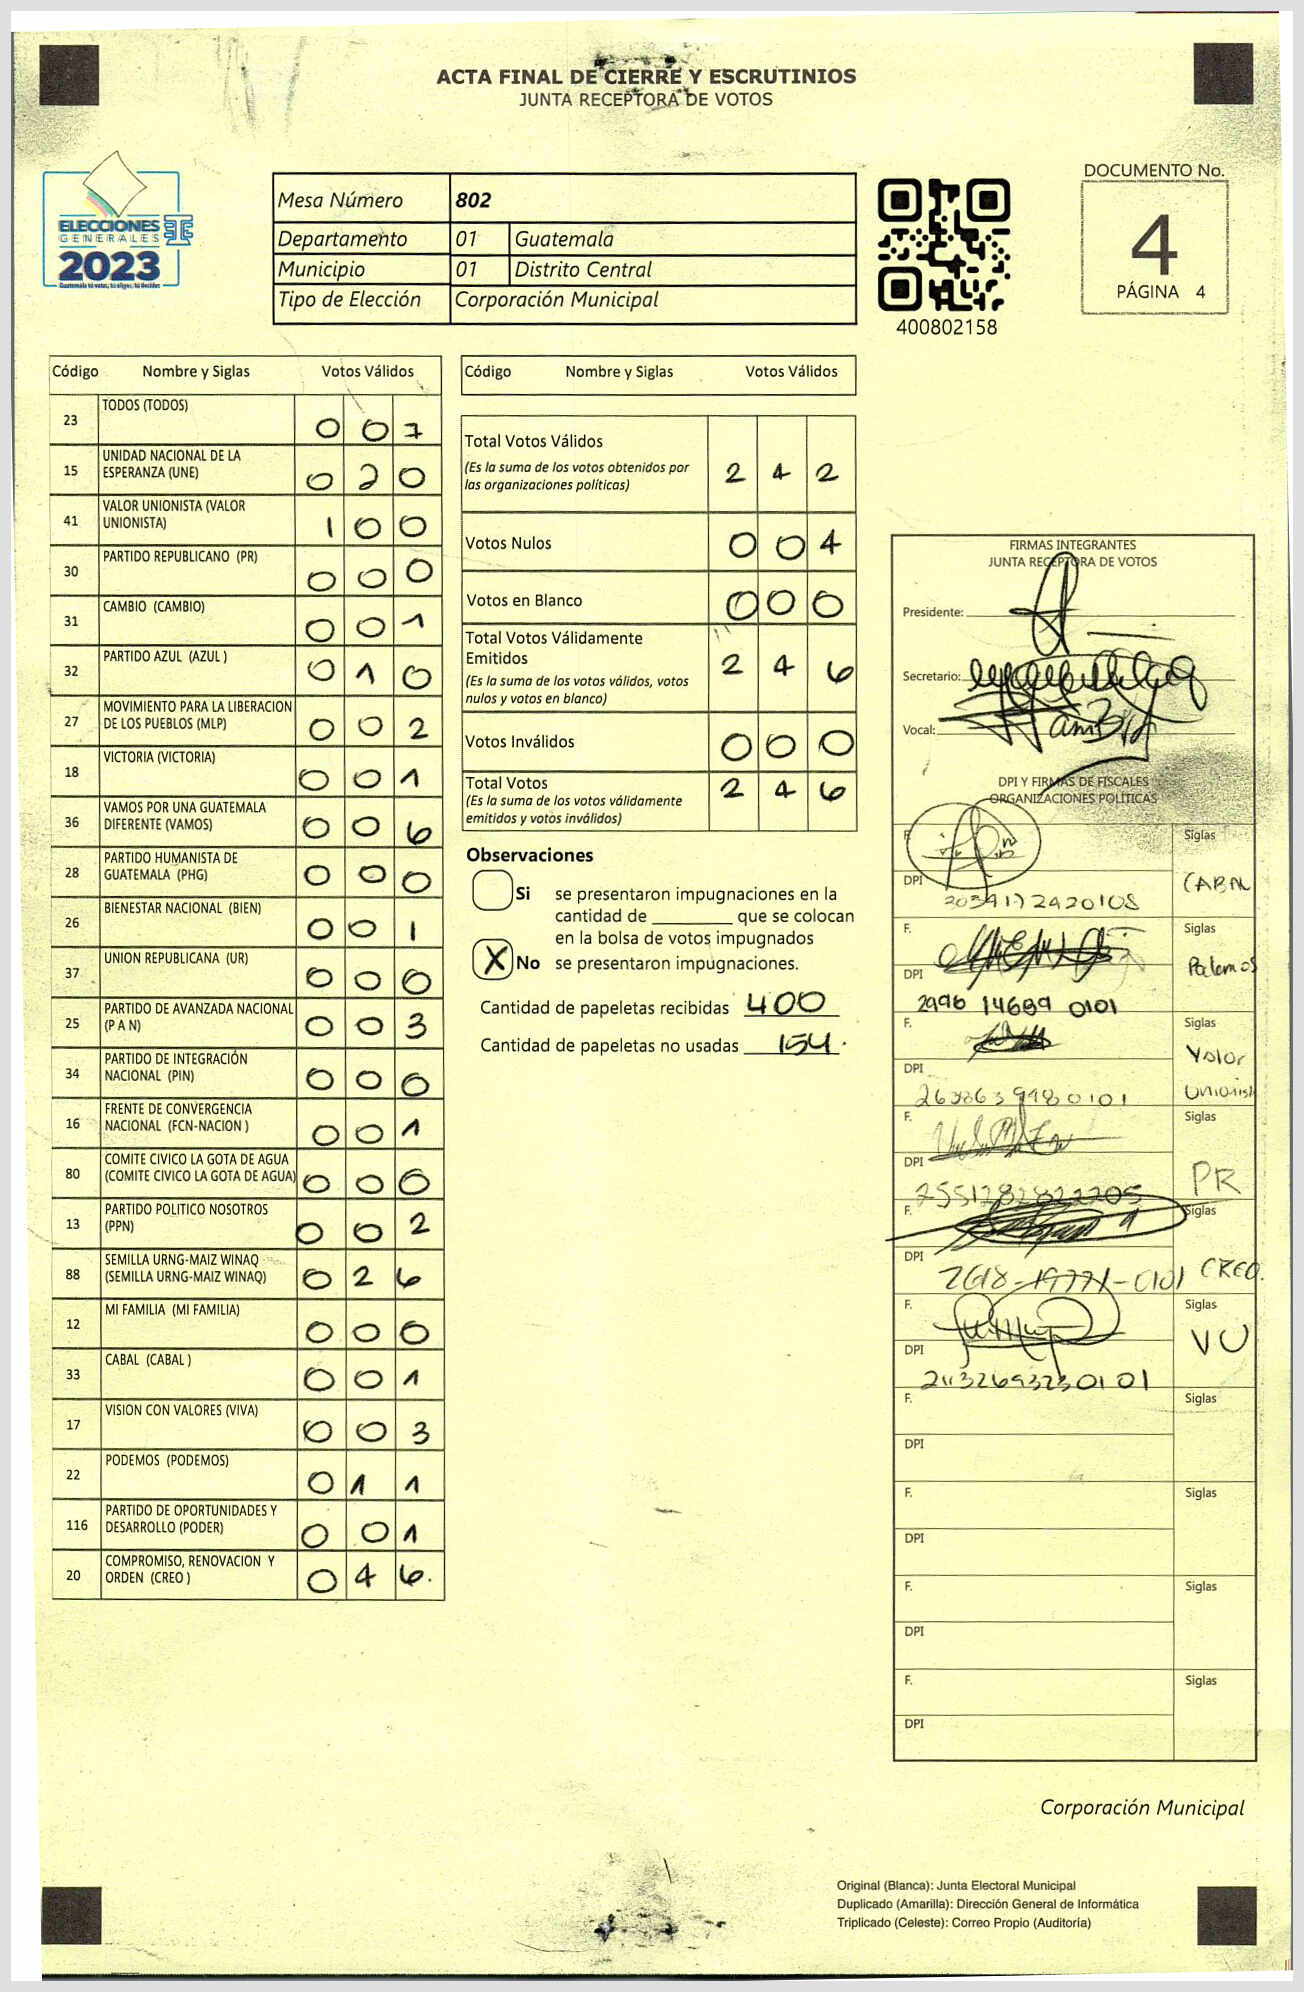 ACTA FINAL DE CIERRE Y ESCRUTINIOS
JUNTA RECEPTORA DE VOTOS
ELECCIONES
GENERALES
2023
Guatemala tú votas, tú eliges, tú decides
Mesa Número 802
Departamento 01 Guatemala
Municipio 01 Distrito Central
Tipo de Elección Corporación Municipal
400802158
DOCUMENTO No.
4
PÁGINA 4
Código Nombre y Siglas Votos Válidos
23 TODOS (TODOS) 0 0 7
15 UNIDAD NACIONAL DE LA
ESPERANZA (UNE) 0 2 0
41 VALOR UNIONISTA (VALOR
UNIONISTA) 1 0 0
30 PARTIDO REPUBLICANO (PR) 0 0 0
31 CAMBIO (CAMBIO) 0 0 1
32 PARTIDO AZUL (AZUL ) 0 1 0
27 MOVIMIENTO PARA LA LIBERACION
DE LOS PUEBLOS (MLP) 0 0 2
18 VICTORIA (VICTORIA) 0 0 1
36 VAMOS POR UNA GUATEMALA
DIFERENTE (VAMOS) 0 0 6
28 PARTIDO HUMANISTA DE
GUATEMALA (PHG) 0 0 0
26 BIENESTAR NACIONAL (BIEN) 0 0 1
37 UNION REPUBLICANA (UR) 0 0 0
25 PARTIDO DE AVANZADA NACIONAL
(P A N) 0 0 3
34 PARTIDO DE INTEGRACIÓN
NACIONAL (PIN) 0 0 0
16 FRENTE DE CONVERGENCIA
NACIONAL (FCN-NACION ) 0 0 1
80 COMITE CIVICO LA GOTA DE AGUA
(COMITE CIVICO LA GOTA DE AGUA) 0 0 0
13 PARTIDO POLITICO NOSOTROS
(PPN) 0 0 2
88 SEMILLA URNG-MAIZ WINAQ
(SEMILLA URNG-MAIZ WINAQ) 0 2 6
12 MI FAMILIA (MI FAMILIA) 0 0 0
33 CABAL (CABAL ) 0 0 1
17 VISION CON VALORES (VIVA) 0 0 3
22 PODEMOS (PODEMOS) 0 1 1
116 PARTIDO DE OPORTUNIDADES Y
DESARROLLO (PODER) 0 0 1
20 COMPROMISO, RENOVACION Y
ORDEN (CREO ) 0 4 6.
Código Nombre y Siglas Votos Válidos
Total Votos Válidos
(Es la suma de los votos obtenidos por
las organizaciones políticas) 2 4 2
Votos Nulos 0 0 4
Votos en Blanco 0 0 0
Total Votos Válidamente
Emitidos 2 4 6
(Es la suma de los votos válidos, votos
nulos y votos en blanco)
Votos Inválidos 0 0 0
Total Votos 2 4 6
(Es la suma de los votos válidamente
emitidos y votos inválidos)
Observaciones
Si se presentaron impugnaciones en la
cantidad de ________ que se colocan
en la bolsa de votos impugnados
X No se presentaron impugnaciones.
Cantidad de papeletas recibidas 400
Cantidad de papeletas no usadas 154.
FIRMAS INTEGRANTES
JUNTA RECEPTORA DE VOTOS
Presidente:
Secretario:
Vocal:
DPI Y FIRMAS DE FISCALES
ORGANIZACIONES POLÍTICAS
F. Siglas
DPI CABAL
F. Siglas
DPI Podemos
2996 14689 0101
F. Siglas
Valor
DPI Unionist
2638639980101
F. Siglas
DPI PR
2551282822205
F. Siglas
DPI CREO.
2618-19771-0101
F. Siglas
DPI VU
21132693230101
F. Siglas
DPI
F. Siglas
DPI
F. Siglas
DPI
F. Siglas
DPI
Corporación Municipal
Original (Blanca): Junta Electoral Municipal
Duplicado (Amarilla): Dirección General de Informática
Triplicado (Celeste): Correo Propio (Auditoría)